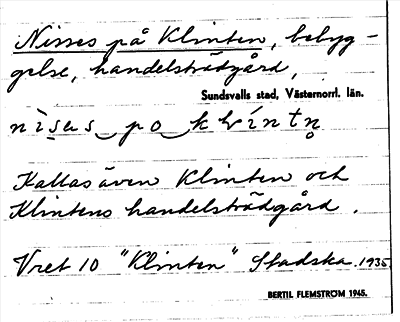 Nisses på Klinten, bebyg-
gelse, handelsträdgård,
Sundsvalls stad, Västernorrl. län.
nìses po klíntn̥
Kallas även Klinten och
Klintens handelsträdgård.
Vret 10 "Klinten" Stadska. 1935.
BERTIL FLEMSTRÖM 1945.